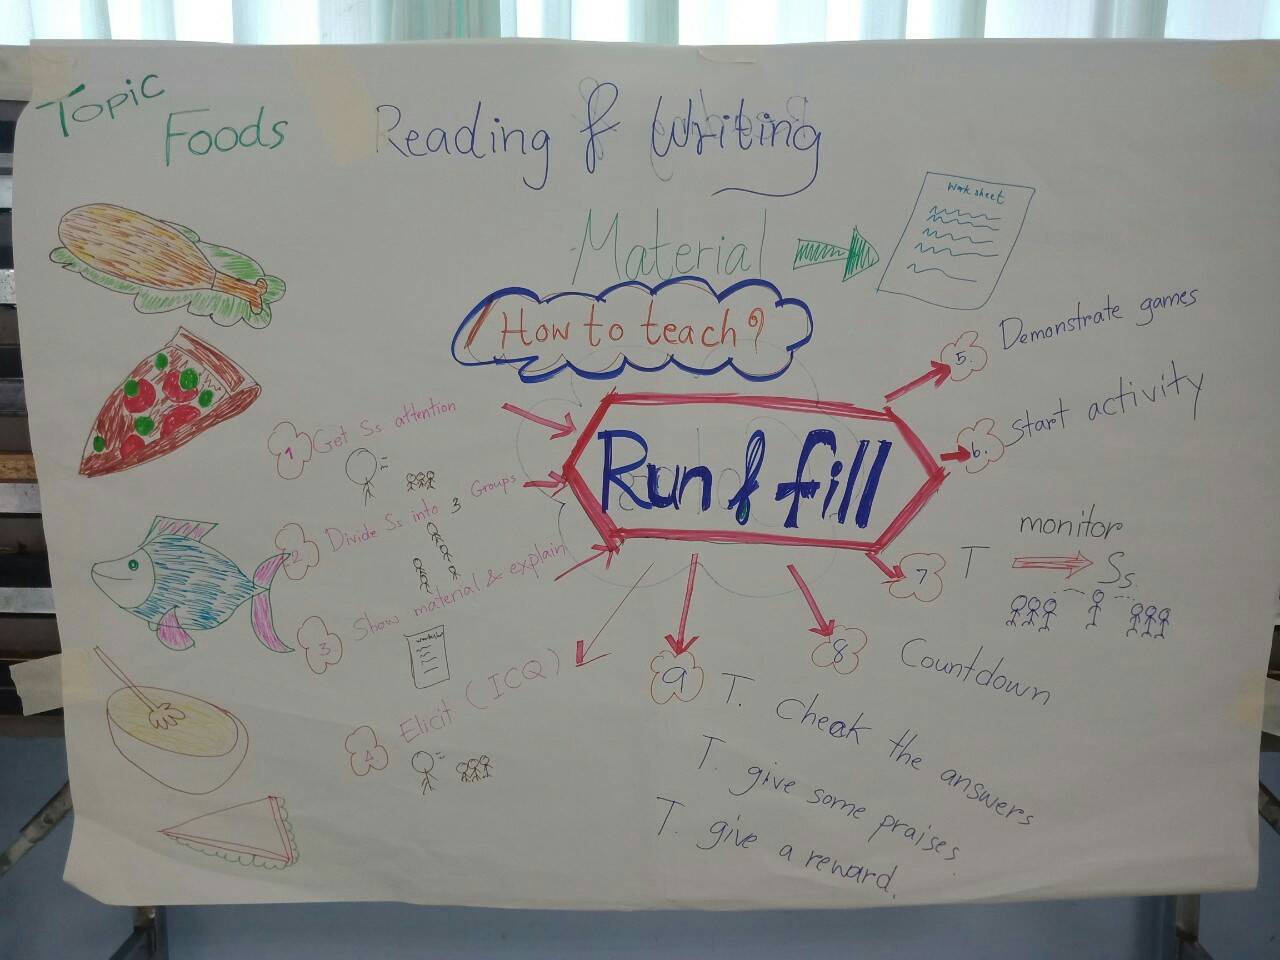 Topic
Foods
Reading & Writing
Material
Work sheet
How to teach?
Run & fill
1 Get Ss attention
2 Divide Ss into 3 Groups
3 Show material & explain
worksheet
4 Elicit (ICQ)
5. Demonstrate games
6. Start activity
7 T monitor Ss.
8 Countdown
9 T. cheak the answers
T. give some praises.
T. give a reward.